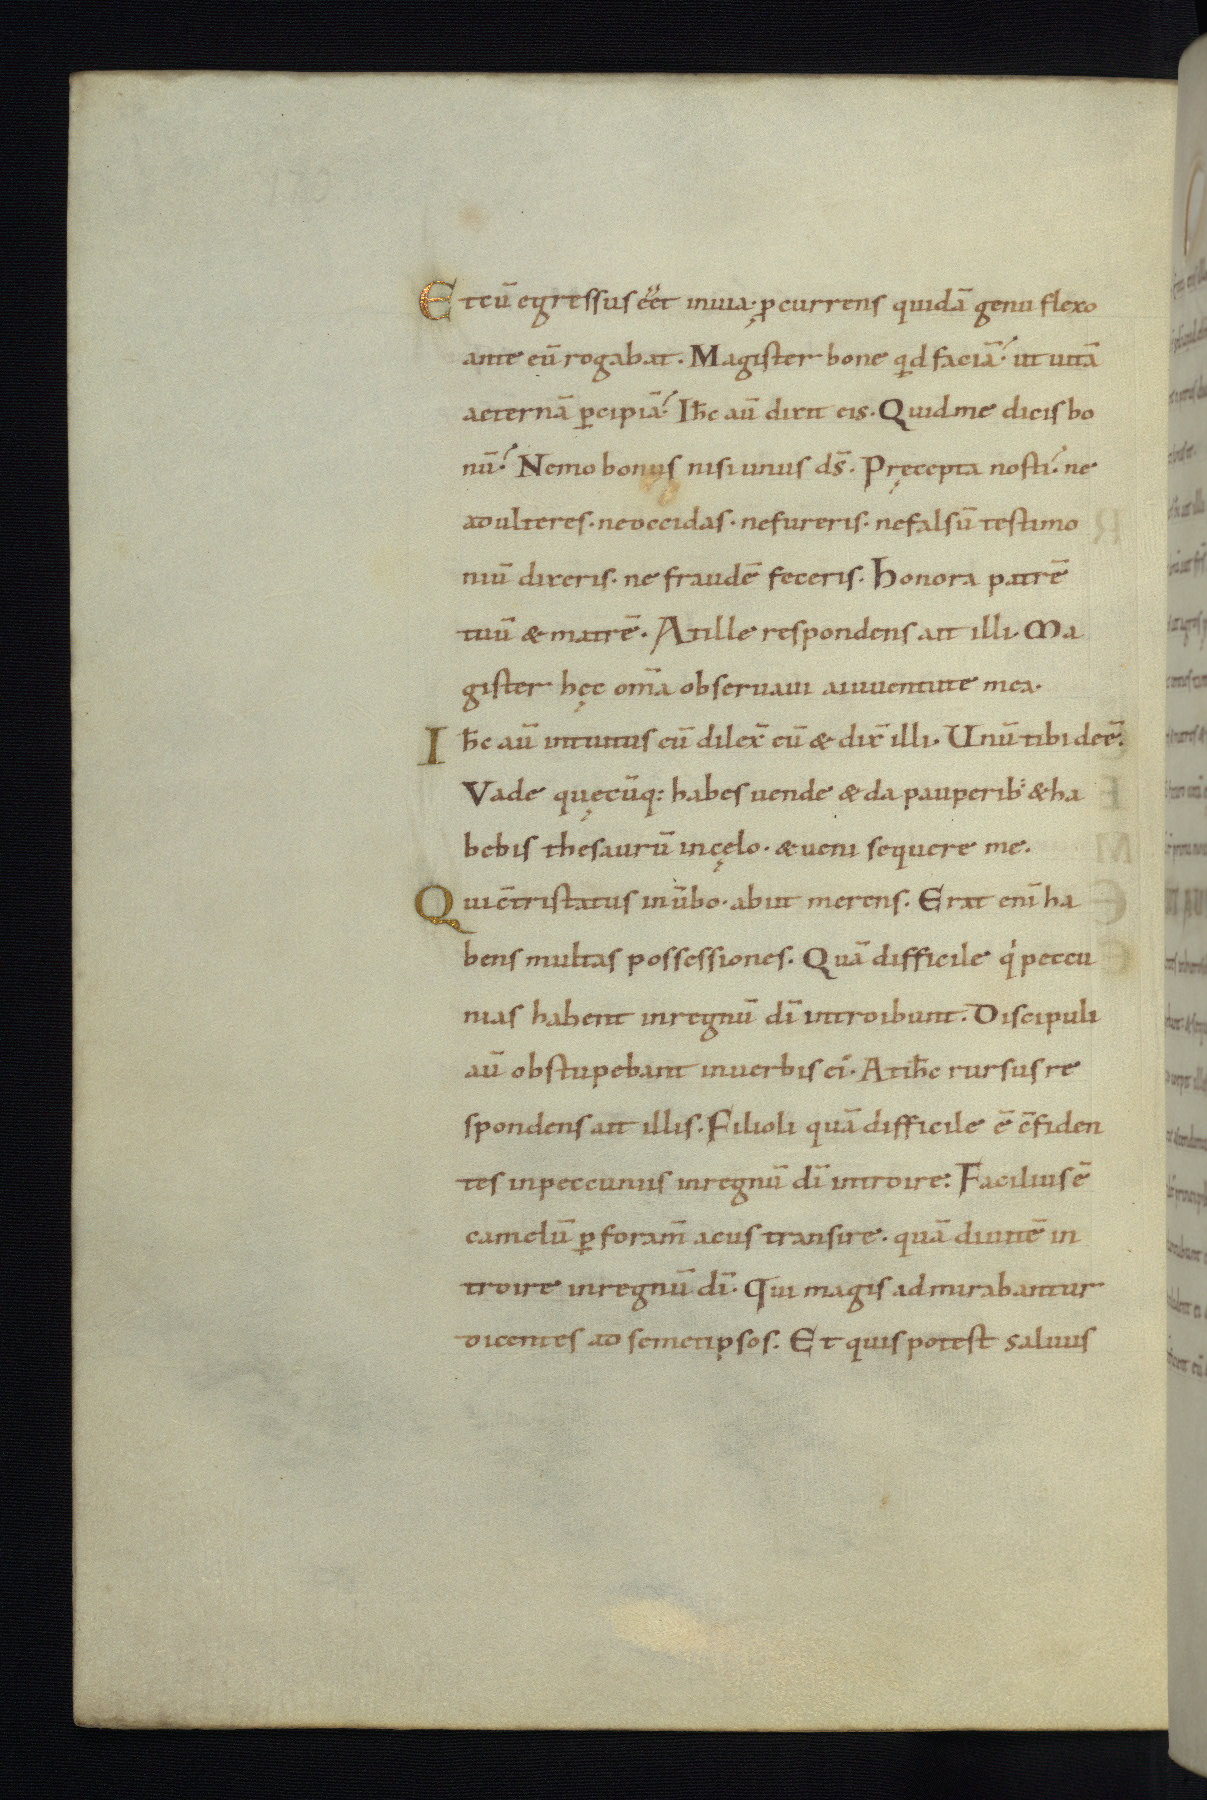 Et cū egressus eēt inuia· p̨currens quidā genu flexo
ante eū rogabat. Magister bone qd faciā? ut uitā
aeternā p̄cipiā? Ih̄c aū dixit eis. Quid me dicis bo
nū? Nemo bonus nisi unus ds̄. Pręcepta nosti? ne
adulteres· ne occidas· ne fureris· ne falsū testimo
niū dixeris· ne fraudē feceris. Honora patrē
tuū & matrē. At ille respondens ait illi. Ma
gister hęc om̄a obseruaui aiuuentute mea.
Ih̄c aū intuitus eū dilex̄ eū & dix̄ illi. Unū tibi deē.
Vade quęcūq; habes uende & da pauperib; & ha
bebis thesaurū incęlo· & ueni sequere me.
Qui c̄tristatus in ūbo· abiit merens. Erat eni ha
bens multas possessiones. Quā difficile qi peccu
nias habent inregnū dī introibunt. Discipuli
aū obstupebant inuerbis ei. At ih̄c rursus re
spondens ait illis. Filioli quā difficile ē c̄fiden
tes inpeccuniis inregnū dī introire: Facilius ē
camelū p̄ foram̄ acus transire· quā diuitē in
troire inregnū dī. Qui magis admirabantur
dicentes ad semetipsos. Et quis potest saluus